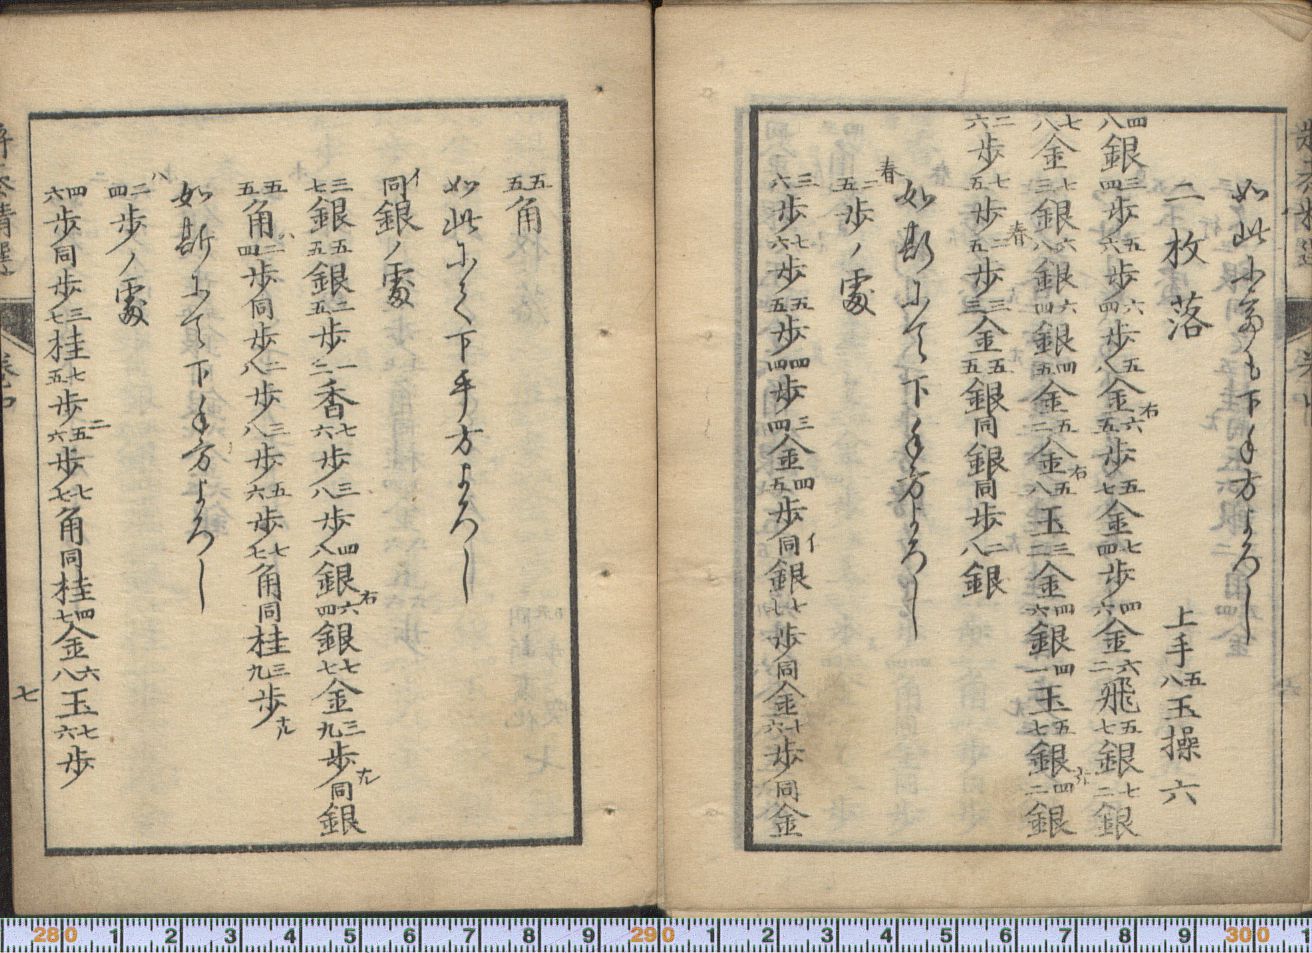 如此にても下手方よろし
二枚落 上手五八玉操六
四八銀三四歩五六歩六四歩五八金右六五歩五七金七四歩四六金六二飛五七銀七二銀
七八金七三銀六八銀六四銀四五金五二金右五八玉三二金四六銀四一玉五七銀引四二銀
二六歩七五歩春二五歩三三金五五銀同銀同歩二八銀
如斯にて下手方よろし
春二五歩ノ處
三六歩七六歩五五歩四四歩三四金四五歩同銀イ七七歩同金十六歩同金
五五角
如此にて下手方よろし
イ同銀ノ處
三七銀五五銀二五歩一二香七六歩三八歩四八銀六四銀右七七金三九歩ナル同銀
五五角二四歩ハ同歩二八歩三八歩五六歩七七角同桂三九歩ナル
如斯にて下手方よろし
ハ二四歩ノ處
四六歩同歩三七桂七五歩五六歩ニ七七角同桂四七金六八玉七六歩
七
280 1 2 3 4 5 6 7 8 9 290 1 2 3 4 5 6 7 8 9 300 1